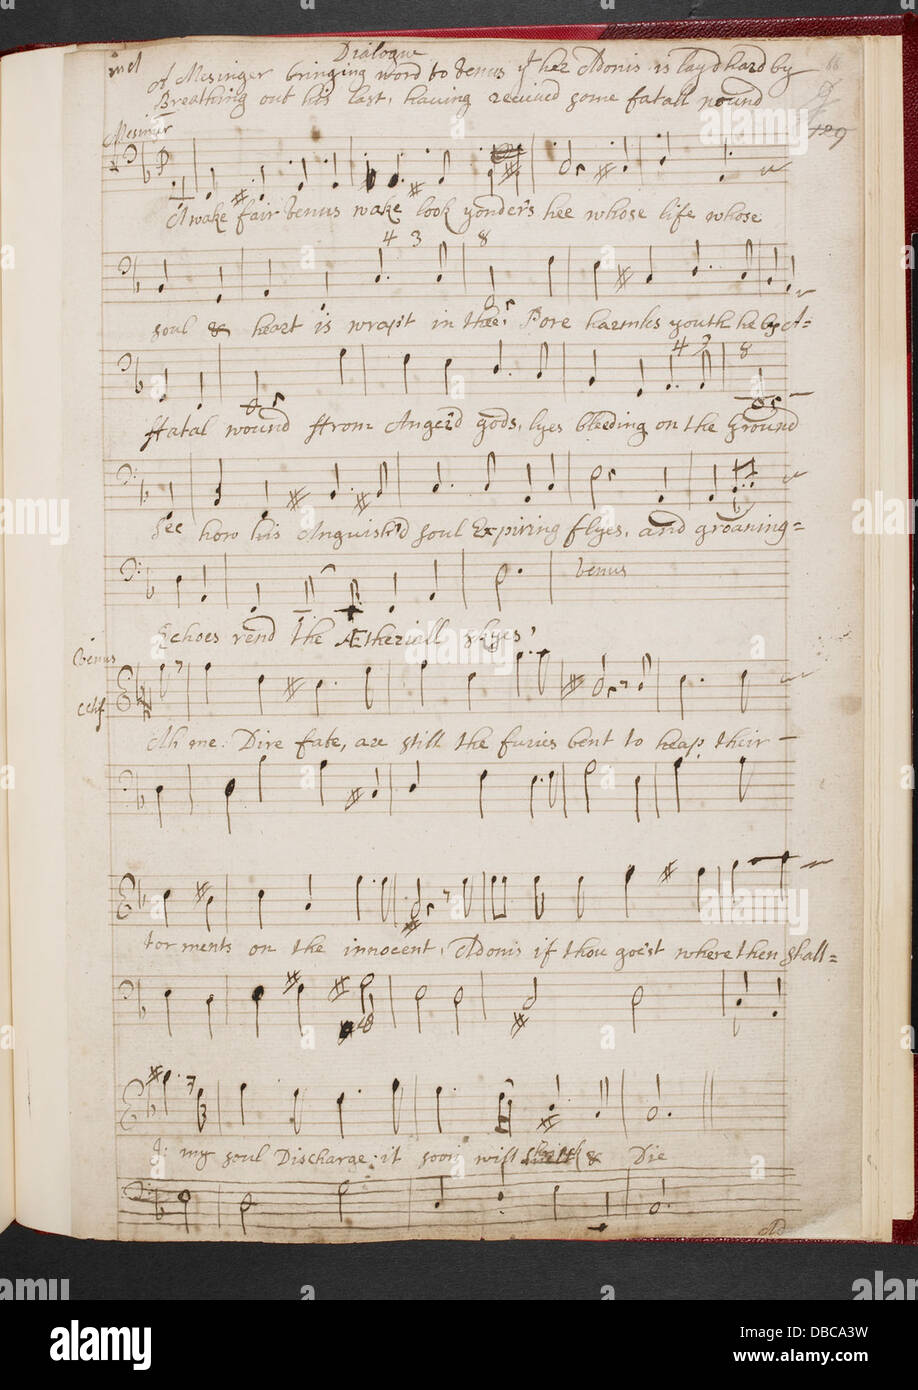 Dialogue
of Mesinger bringing word to Venus yt her Adonis is layd hard by
Breathing out his last, having recived some fatall wound
129
Mesinger
Awake fair Venus wake look yonder's hee whose life whose
4 3 8
soul & heart is wrap't in thee, Pore harmles youth he by A=
4 3 8
ffatal wound ffrom Anger'd gods, lyes bleeding on the Ground
See how his Anguish'd soul Expiring flyes, and groaning=
Venus
Echoes rend the Ætheriall skyes'
Venus
Ah me. Dire fate, are still the furies bent to heap their
torments on the innocent, Adonis if thou goe'st where then shall=
I: my soul Discharge: it soon will & Die
Ad
alamy
alamy
Image ID: DBCA3W
www.alamy.com